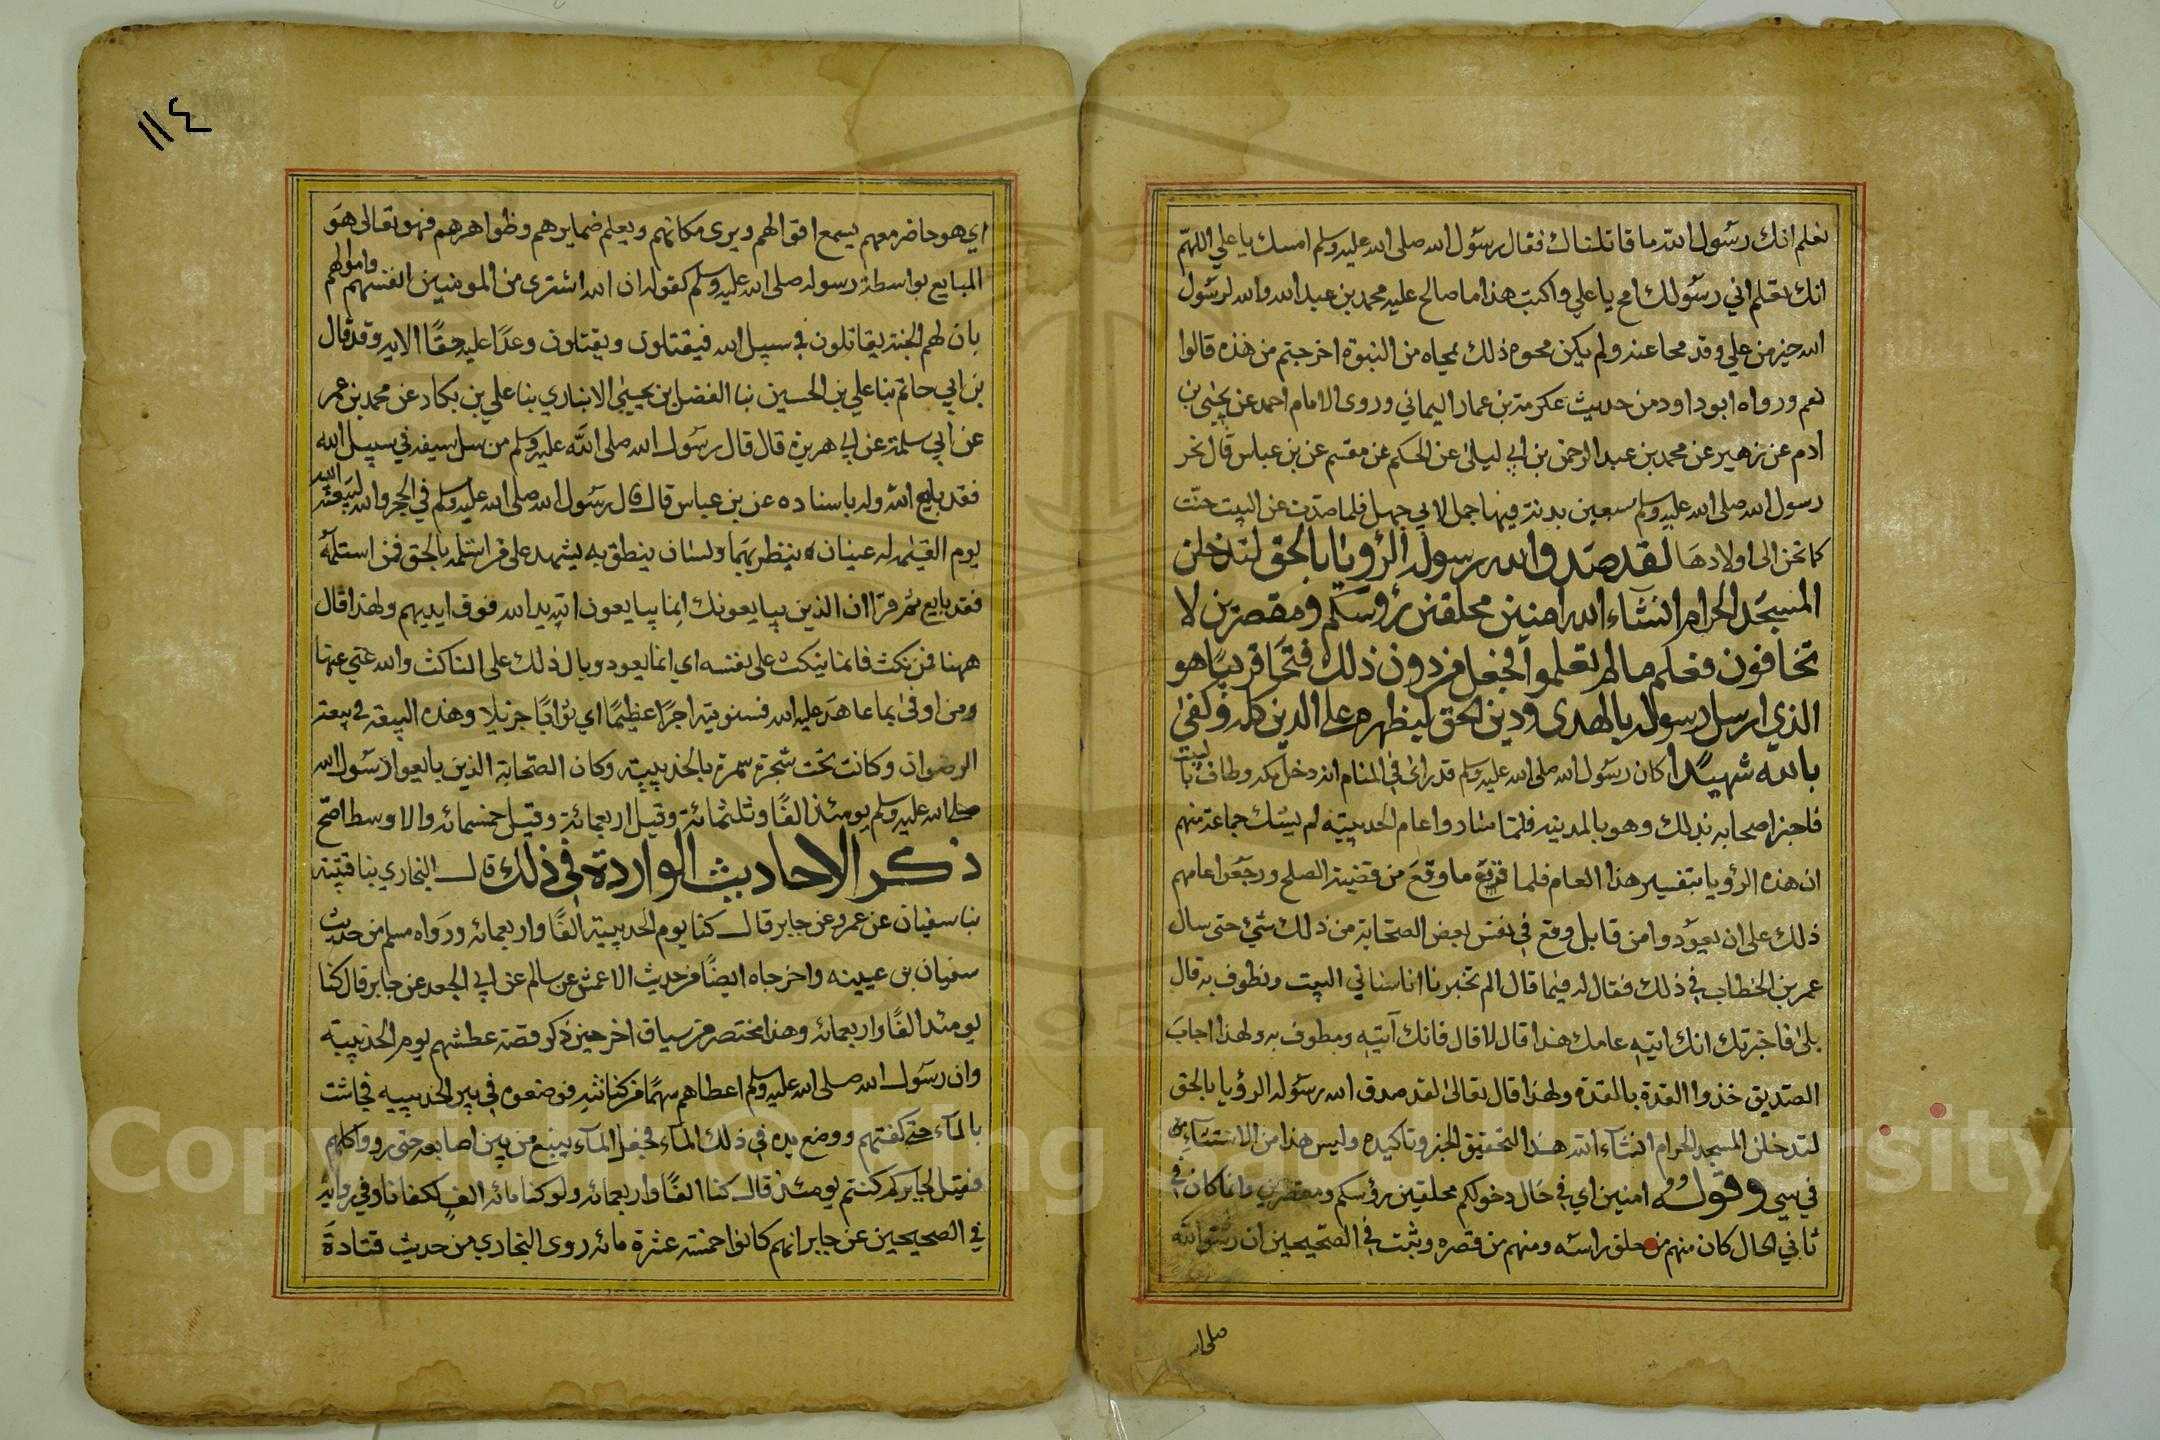 نعلم انك رسول الله ما قاتلناك فقال رسول الله صلى الله عليه وسلم امسك يا علي اللهم
انك تعلم اني رسولك امح يا علي واكتب هذا ما صالح عليه محمد بن عبد الله والله لرسول
الله خير من علي وقد محا عنه ولم يكن محوه ذلك يمحاه من النبوة اخرجتم من هذه قالوا
نعم ورواه ابو داود من حديث عكرمة بن عمار اليماني وروى الامام احمد عن يحيى بن
ادم عن زهير عن محمد بن عبد الرحمن بن ابي ليلى عن الحكم عن مقسم عن بن عباس قال نحر
رسول الله صلى الله عليه وسلم سبعين بدنة فيها جمل لابي جهل فلما صدت عن البيت حنت
كما تحن الى اولادها لقد صدق الله رسوله الرؤيا بالحق لتدخلن
المسجد الحرام انشاء الله امنين محلقين رؤسكم ومقصرين لا
تخافون فعلم مالم تعلموا فجعل من دون ذلك فتحا قريبا هو
الذي ارسل رسوله بالهدى ودين الحق ليظهره على الدين كله وكفى
بالله شهيدا كان رسول الله صلى الله عليه وسلم قد راى في المنام انه دخل مكه وطاف بالبيت
فاخبر اصحابه بذلك وهو بالمدينه فلما ساروا عام الحديبيه لم يشك جماعة منهم
ان هذه الرؤيا بتفسير هذا العام فلما وقع ما وقع من قضية الصلح ورجعوا عامهم
ذلك على ان يعودوا من قابل وقع في نفس بعض الصحابة من ذلك شئ حتى سال
عمر بن الخطاب في ذلك فقال له فيما قال الم تخبرنا انا سناتي البيت ونطوف به قال
بلى فاخبرتك انك اتيه عامك هذا قال لا قال فانك آتيه ومطوف به ولهذا اجاب
الصديق خذوا القذة بالقذة ولهذا قال تعالى لقد صدق الله رسوله الرؤيا بالحق
لتدخلن المسجد الحرام انشآء الله هذا التحقيق الخبر وتاكيده وليس هذا من الاستثناء
في شي وقوله امنين اي في حال دخولكم محلقين رؤسكم ومقصرين وانما كان في
ثاني الحال كان منهم من حلق راسه ومنهم من قصره وثبت في الصحيحين ان رسول الله
صلى الله
١١٤
اي هو حاضر معهم يسمع اقوالهم ويرى مكانهم ويعلم ضمايرهم وظواهرهم فهو تعالى هو
المبايع بواسطة رسوله صلى الله عليه وسلم كقوله ان الله اشترى من المومنين انفسهم واموالهم
بان لهم الجنة يقاتلون في سبيل الله فيقتلون ويقتلون وعدا عليه حقا الايه وقد قال
بن ابي حاتم بنا علي بن الحسين نبا الفضل بن يحيى الانباري بنا علي بن بكار عن محمد بن عمر
عن ابي سلمة عن ابي هريرة قال قال رسول الله صلى الله عليه وسلم من سل سيفه في سبيل الله
فقد بايع الله وله باسناده عن بن عباس قال قال رسول الله صلى الله عليه وسلم في الحجر والله ليبعثنه الله
يوم القيمه له عينان ينظر بهما ولسان ينطق به يشهد على من استلمه بالحق فمن استلمه
فقد بايع ثم قرا ان الذين يبايعونك انما يبايعون الله يد الله فوق ايديهم ولهذا قال
ههنا فمن نكث فانما ينكث على نفسه اي انما يعود وبال ذلك على الناكث والله غني عنها
ومن اوفى بما عاهد عليه الله فسنوتيه اجرا عظيما اي ثوابا جزيلا وهذه البيعة في بيعة
الرضوان وكانت تحت شجرة سمرة بالحديبيه وكان الصحابة الذين بايعوا رسول الله
صلى الله عليه وسلم يومئذ الفا وثلثمائة وقيل اربعمائة وقيل خمسمائه والاوسط اصح
ذكر الاحاديث الواردة في ذلك قال البخاري بنا قتيبة
بنا سفيان عن عمرو عن جابر قال كنا يوم الحديبية الفا واربعمائه ورواه مسلم من حديث
سفيان بن عيينه واخرجاه ايضا من حديث الاعمش عن سالم عن ابي الجعد عن جابر قال كنا
يومئذ الفا واربعمائه وهذا مختصر من سياق اخر حين ذكر قصة عطشهم يوم الحديبيه
وان رسول الله صلى الله عليه وسلم اعطاهم سهما من كنانته فوضعوه في بير الحديبيه فجاشت
بالمآء حتى كفتهم ووضع يده في ذلك المآء فجعل المآء ينبع من بين اصابعه حتى رووا كلهم
فقيل لجابر كم كنتم يومئذ قال كنا الفا واربعمائه ولو كنا مائه الف لكفانا وفي رواية
في الصحيحين عن جابر انهم كانوا خمس عشرة مائه روى البخاري من حديث قتادة
Copyright © King Saud University